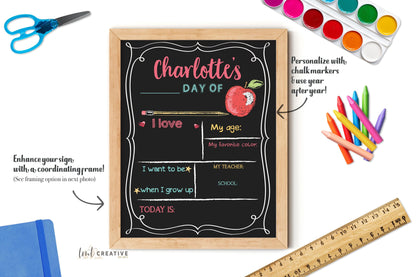 Charlotte's
DAY OF
I love
My age:
My favorite color:
I want to be
when I grow up
MY TEACHER:
SCHOOL:
TODAY IS:
Personalize with
chalk markers
& use year
after year!
Enhance your sign
with a coordinating frame!
(See framing option in next photo)
CREATIVE